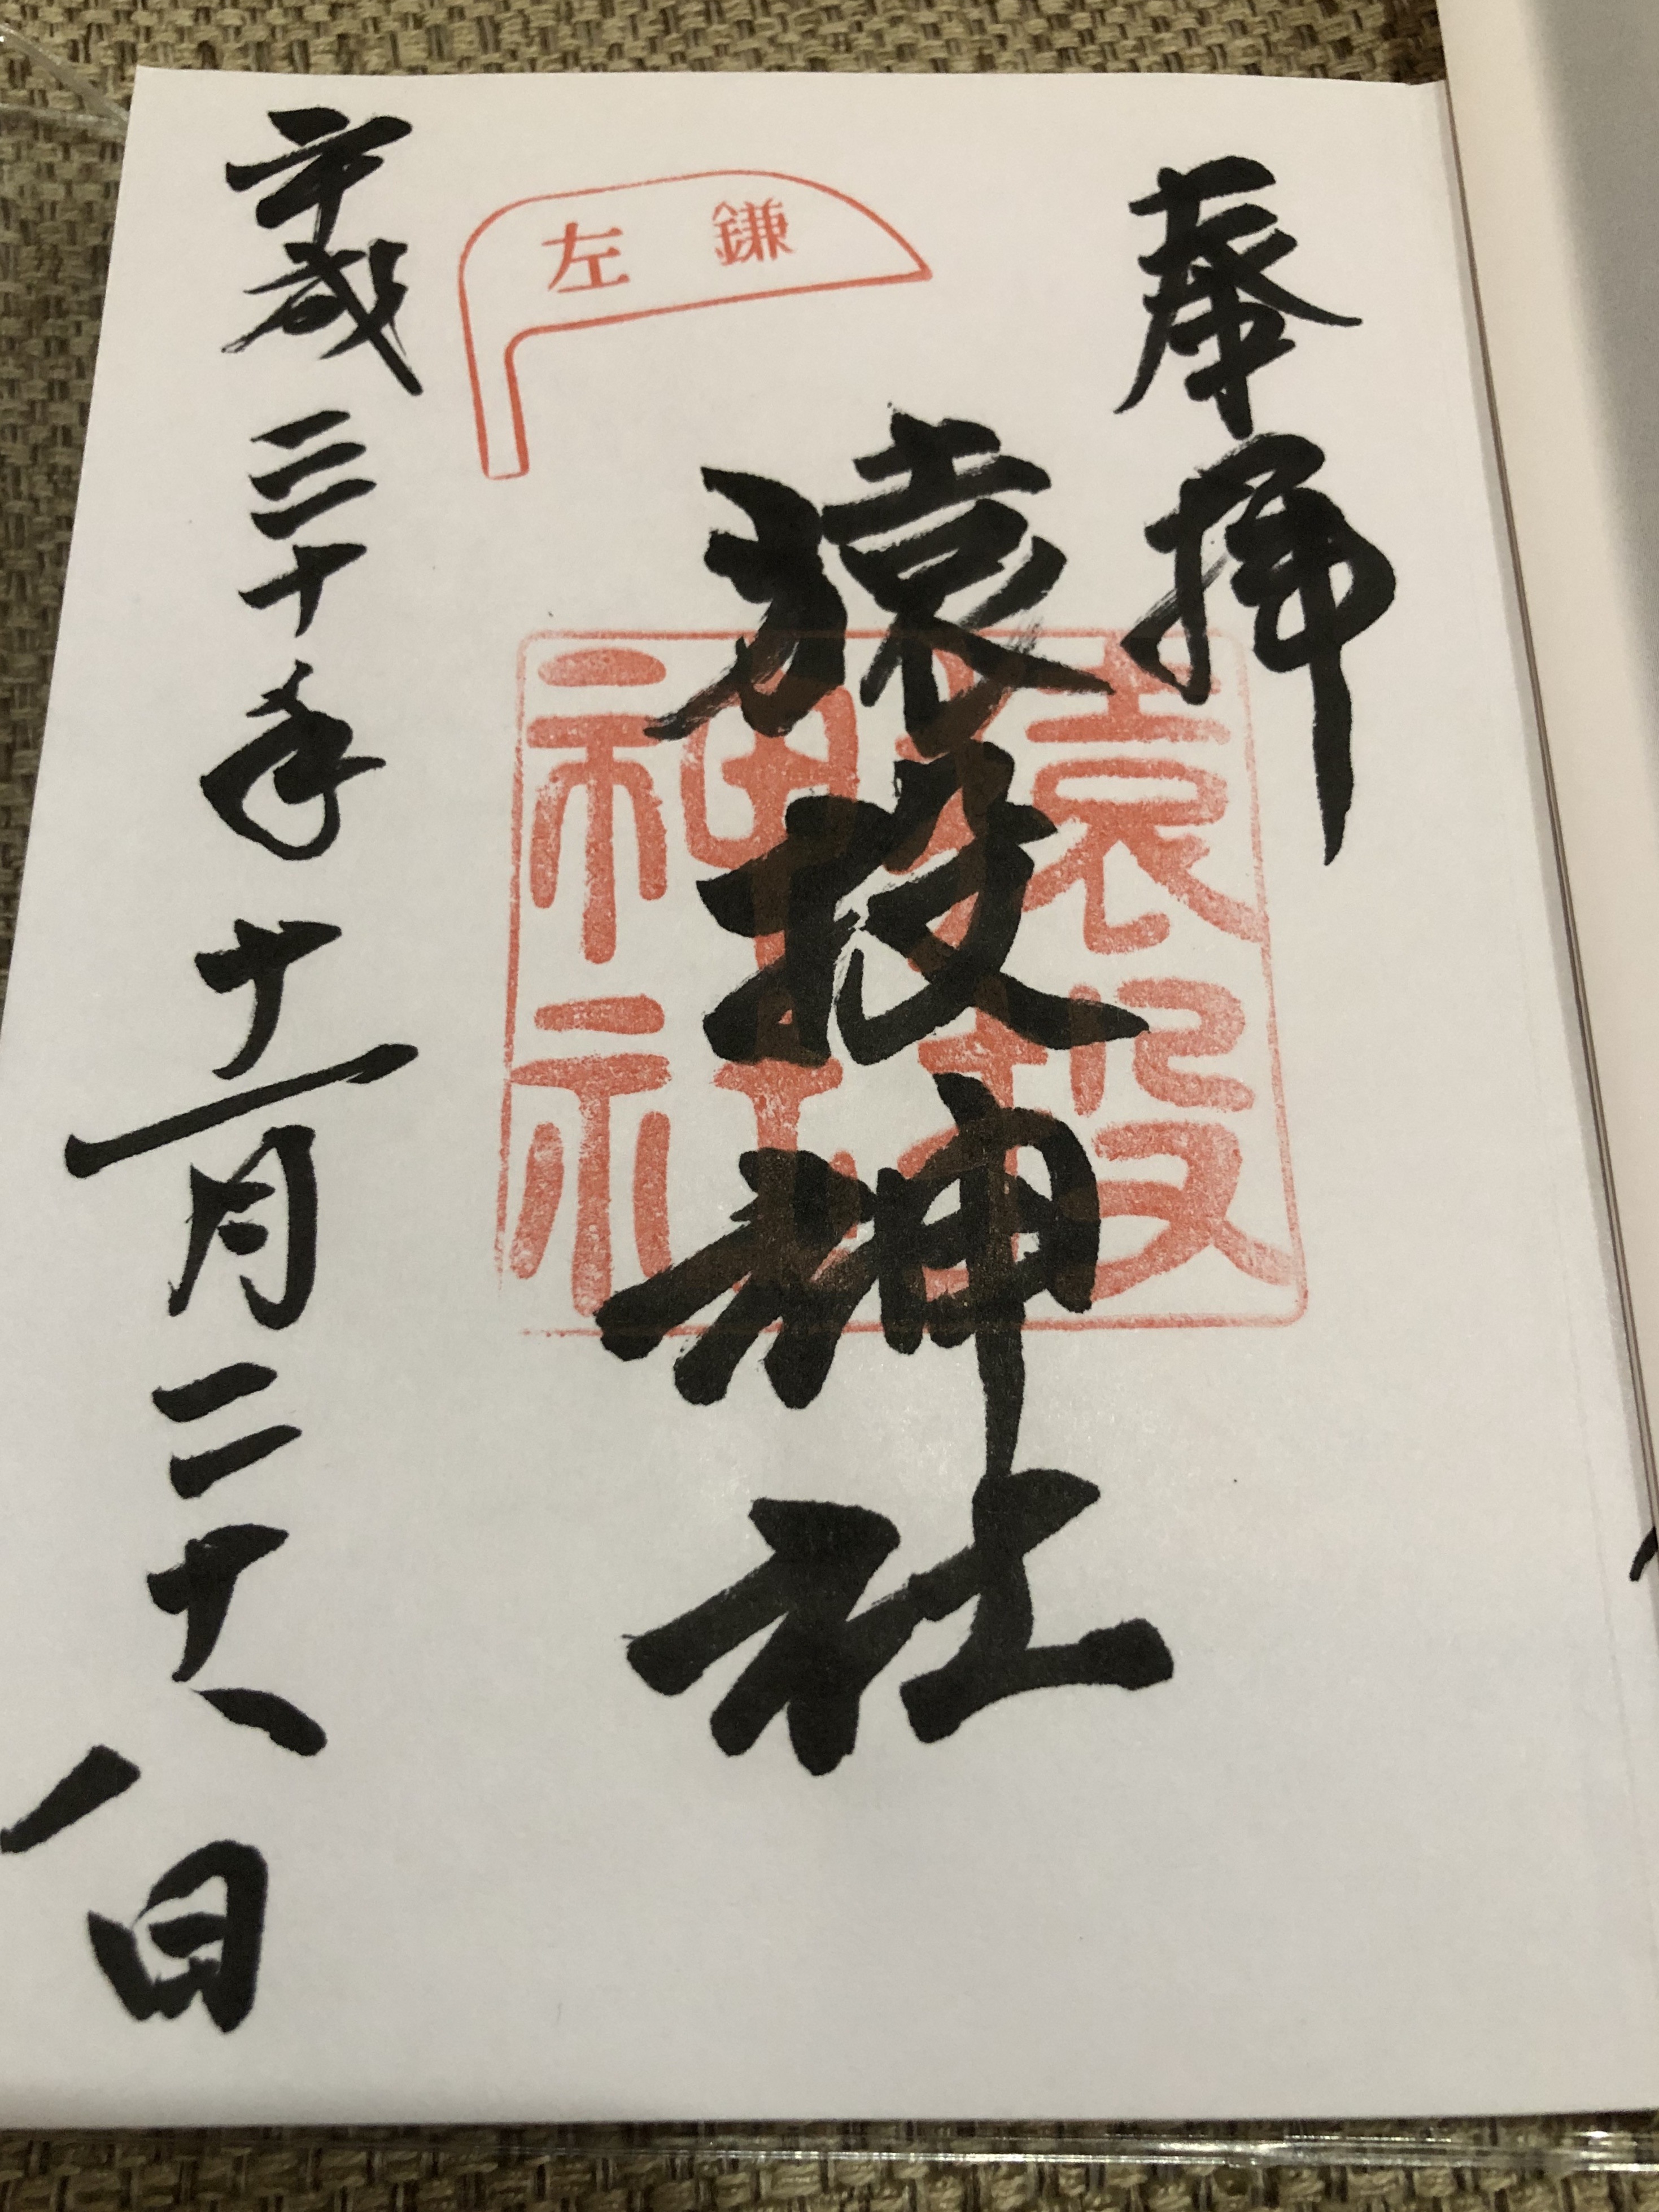 奉拝
猿投神社
猿投
神社
左鎌
平成三十年十一月二十八日